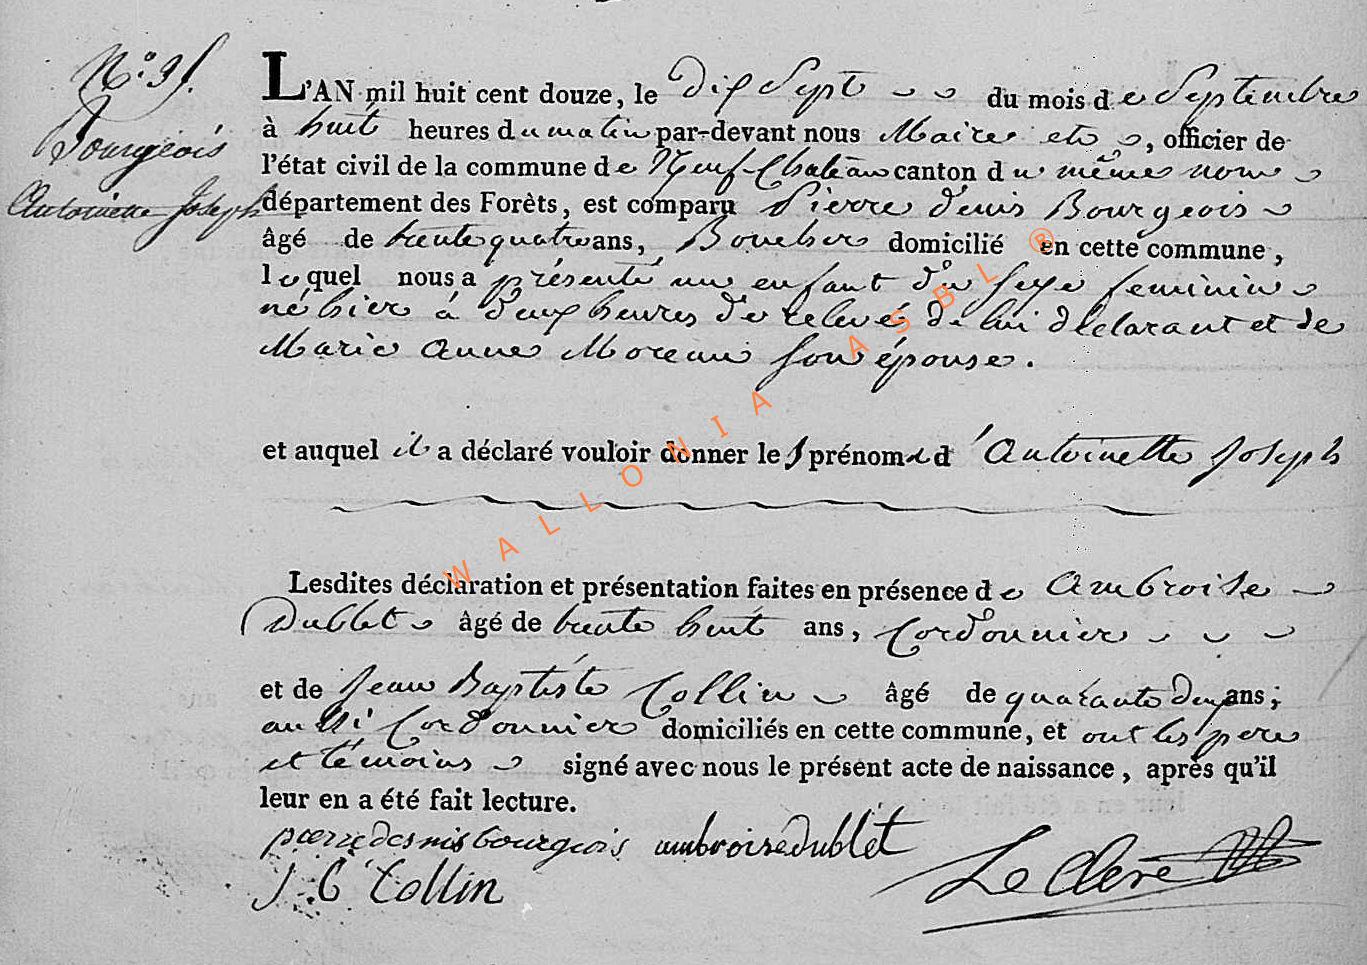 N.° 35.
Bourgeois
Antoinette Joseph
L'AN mil huit cent douze, le dix Sept du mois de Septembre
à huit heures du matin par-devant nous Maire etc, officier de
l'état civil de la commune de Neuf-Chateau canton du même nom
département des Forèts, est comparu Pierre denis Bourgeois
âgé de trente quatre ans, Boucher domicilié en cette commune,
lequel nous a présenté un enfant du sexe feminin
né hier á deux heures de relevé de lui déclarant et de
Marie Anne Moreau son épouse.
et auquel il a déclaré vouloir donner les prénoms d'Antoinette Joseph
Lesdites déclaration et présentation faites en présence de Ambroise
Dublet âgé de trente huit ans, Cordonnier
et de Jean Baptiste Collin âgé de quarante deux ans,
aussi Cordonnier domiciliés en cette commune, et ont les pere
et témoins signé avec nous le présent acte de naissance, après qu'il
leur en a été fait lecture.
pierre denis bourgeois ambroise dublet
J. B Collin Le Clerc
WALLONIA ASBL ®